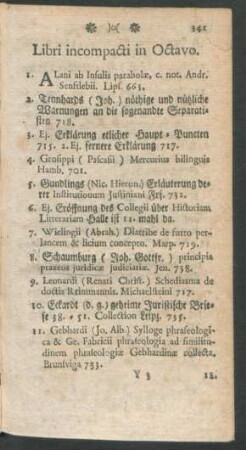 341
Libri incompacti in Octavo.
1. Alani ab Insulis parabolæ, c. not. Andr.
Senftlebii. Lipſ. 663.
2. Tennhards (Joh.) nöthige und nützliche
Warnungen an die ſogenandte Separati-
ſten 718.
3. Ej. Erklärung etlicher Haupt-Puncten
715. 2. Ej. fernere Erklärung 717.
4. Grosippi (Pascasii) Mercurius bilinguis
Hamb. 701.
5. Gundlings (Nic. Hieron.) Erläuterung de-
rer Institutionum Justiniani Frf. 732.
6. Ej. Eröffnung des Collegii über Historiam
Litterariam Halle iſt 12. mahl da.
7. Wielingii (Abrah.) Diatribe de furto per
lancem & licium concepto. Marp. 719.
8. Schaumburg (Joh. Gottfr.) principia
praxeos juridicæ judiciariæ. Jen. 738.
9. Leonardi (Renati Christ.) Schediasma de
doctis Reinmannis. Michaelſteini 717.
10. Eckardt (d. g.) geheime Juriſtiſche Brie-
fe 38. - 51. Collection Leipz. 735.
11. Gebhardi (Jo. Alb.) Sylloge phraseologi-
ca & Ge. Fabricii phraseologia ad similitu-
dinem phraseologiæ Gebhardinæ collecta.
Brunſviga 733.
Y 3 12.